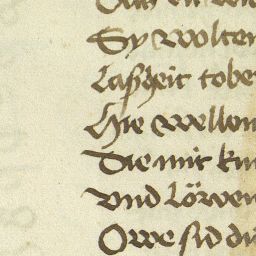 Sy wolten
Laßheit tobe
Hie wellen
Die mit ku
Vnd Löwen
Owe sid du